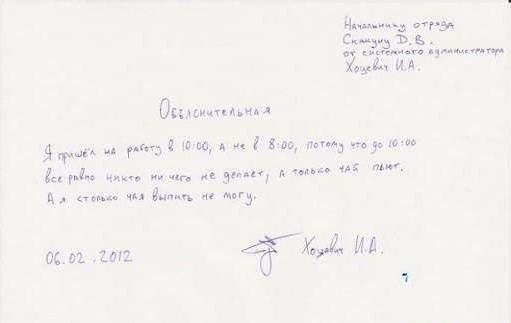 Начальнику отряда
Скакуну Д.В.
от системного администратора
Хоцевич И.А.
Объяснительная
Я пришёл на работу в 10:00, а не в 8:00, потому что до 10:00
все равно никто ни чего не делает, а только чай пьют.
А я столько чая выпить не могу.
06.02.2012 Хоцевич И.А.